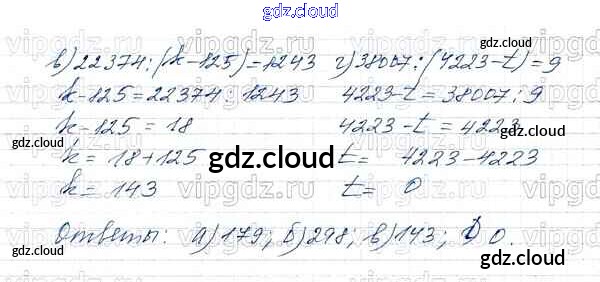 gdz.cloud
в) 22374:(k-125)=1243 г) 38007:(4223-t)=9
k-125=22374:1243 4223-t=38007:9
k-125=18 4223-t=4223
k=18+125 t=4223-4223
k=143 t=0
Ответы: а)179; б)298; в)143; 0.
gdz.cloud
gdz.cloud
gdz.cloud
gdz.cloud
gdz.cloud
gdz.cloud
gdz.cloud